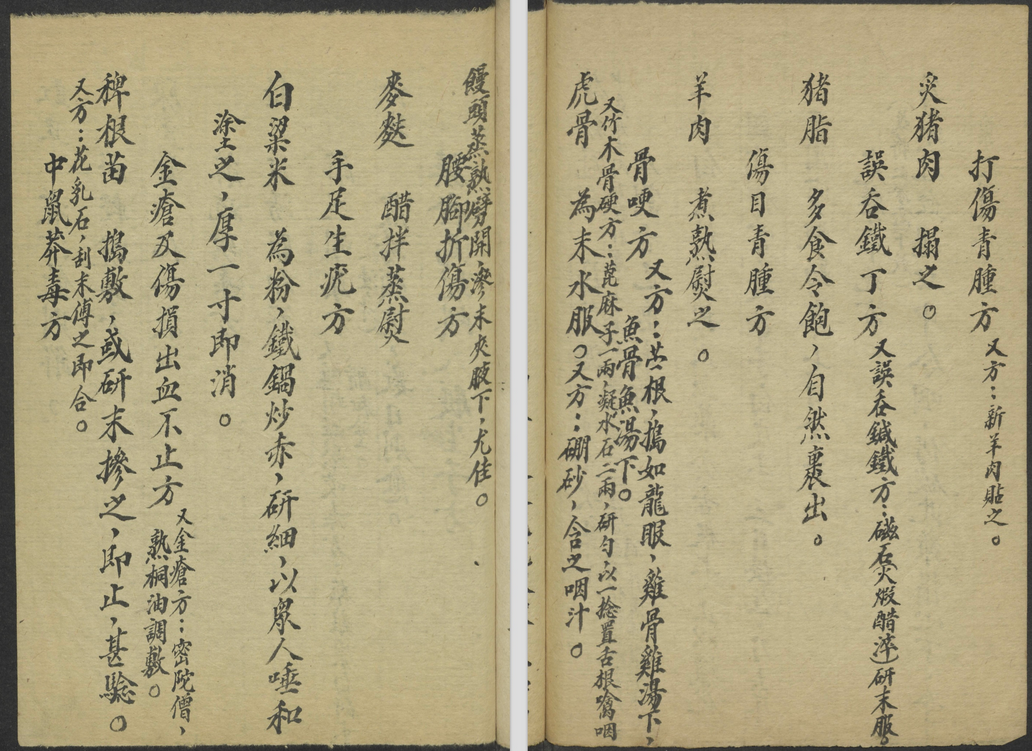 打傷青腫方 又方：新羊肉貼之。
炙猪肉 搨之。
誤吞鐵丁方 又誤吞鍼鐵方：磁石火煅醋淬研末服。
猪脂 多食令飽，自然裹出。
傷目青腫方
羊肉 煮熟熨之。
骨哽方 又方：苎根，搗如龍眼，雞骨雞湯下，
魚骨魚湯下。
又竹木骨硬方：萞麻子一兩，凝水石二兩，研勻，以一捻置舌根噙咽
虎骨 為末水服。又方：硼砂，含之咽汁。
饅頭蒸熟，劈開，滲末夾腋下，尤佳。
腰胸折傷方
麥麩 醋拌蒸熨
手足生疣方
白粱米 為粉，鐵鍋炒赤，研細，以眾人唾和
塗之，厚一寸即消。
金瘡及傷損出血不止方 又金瘡方：密陀僧，
熟桐油調敷。
稗根苗 搗敷，或研末摻之，即止，甚驗。
又方：花乳石，刮末傅之即合。
中鼠莽毒方